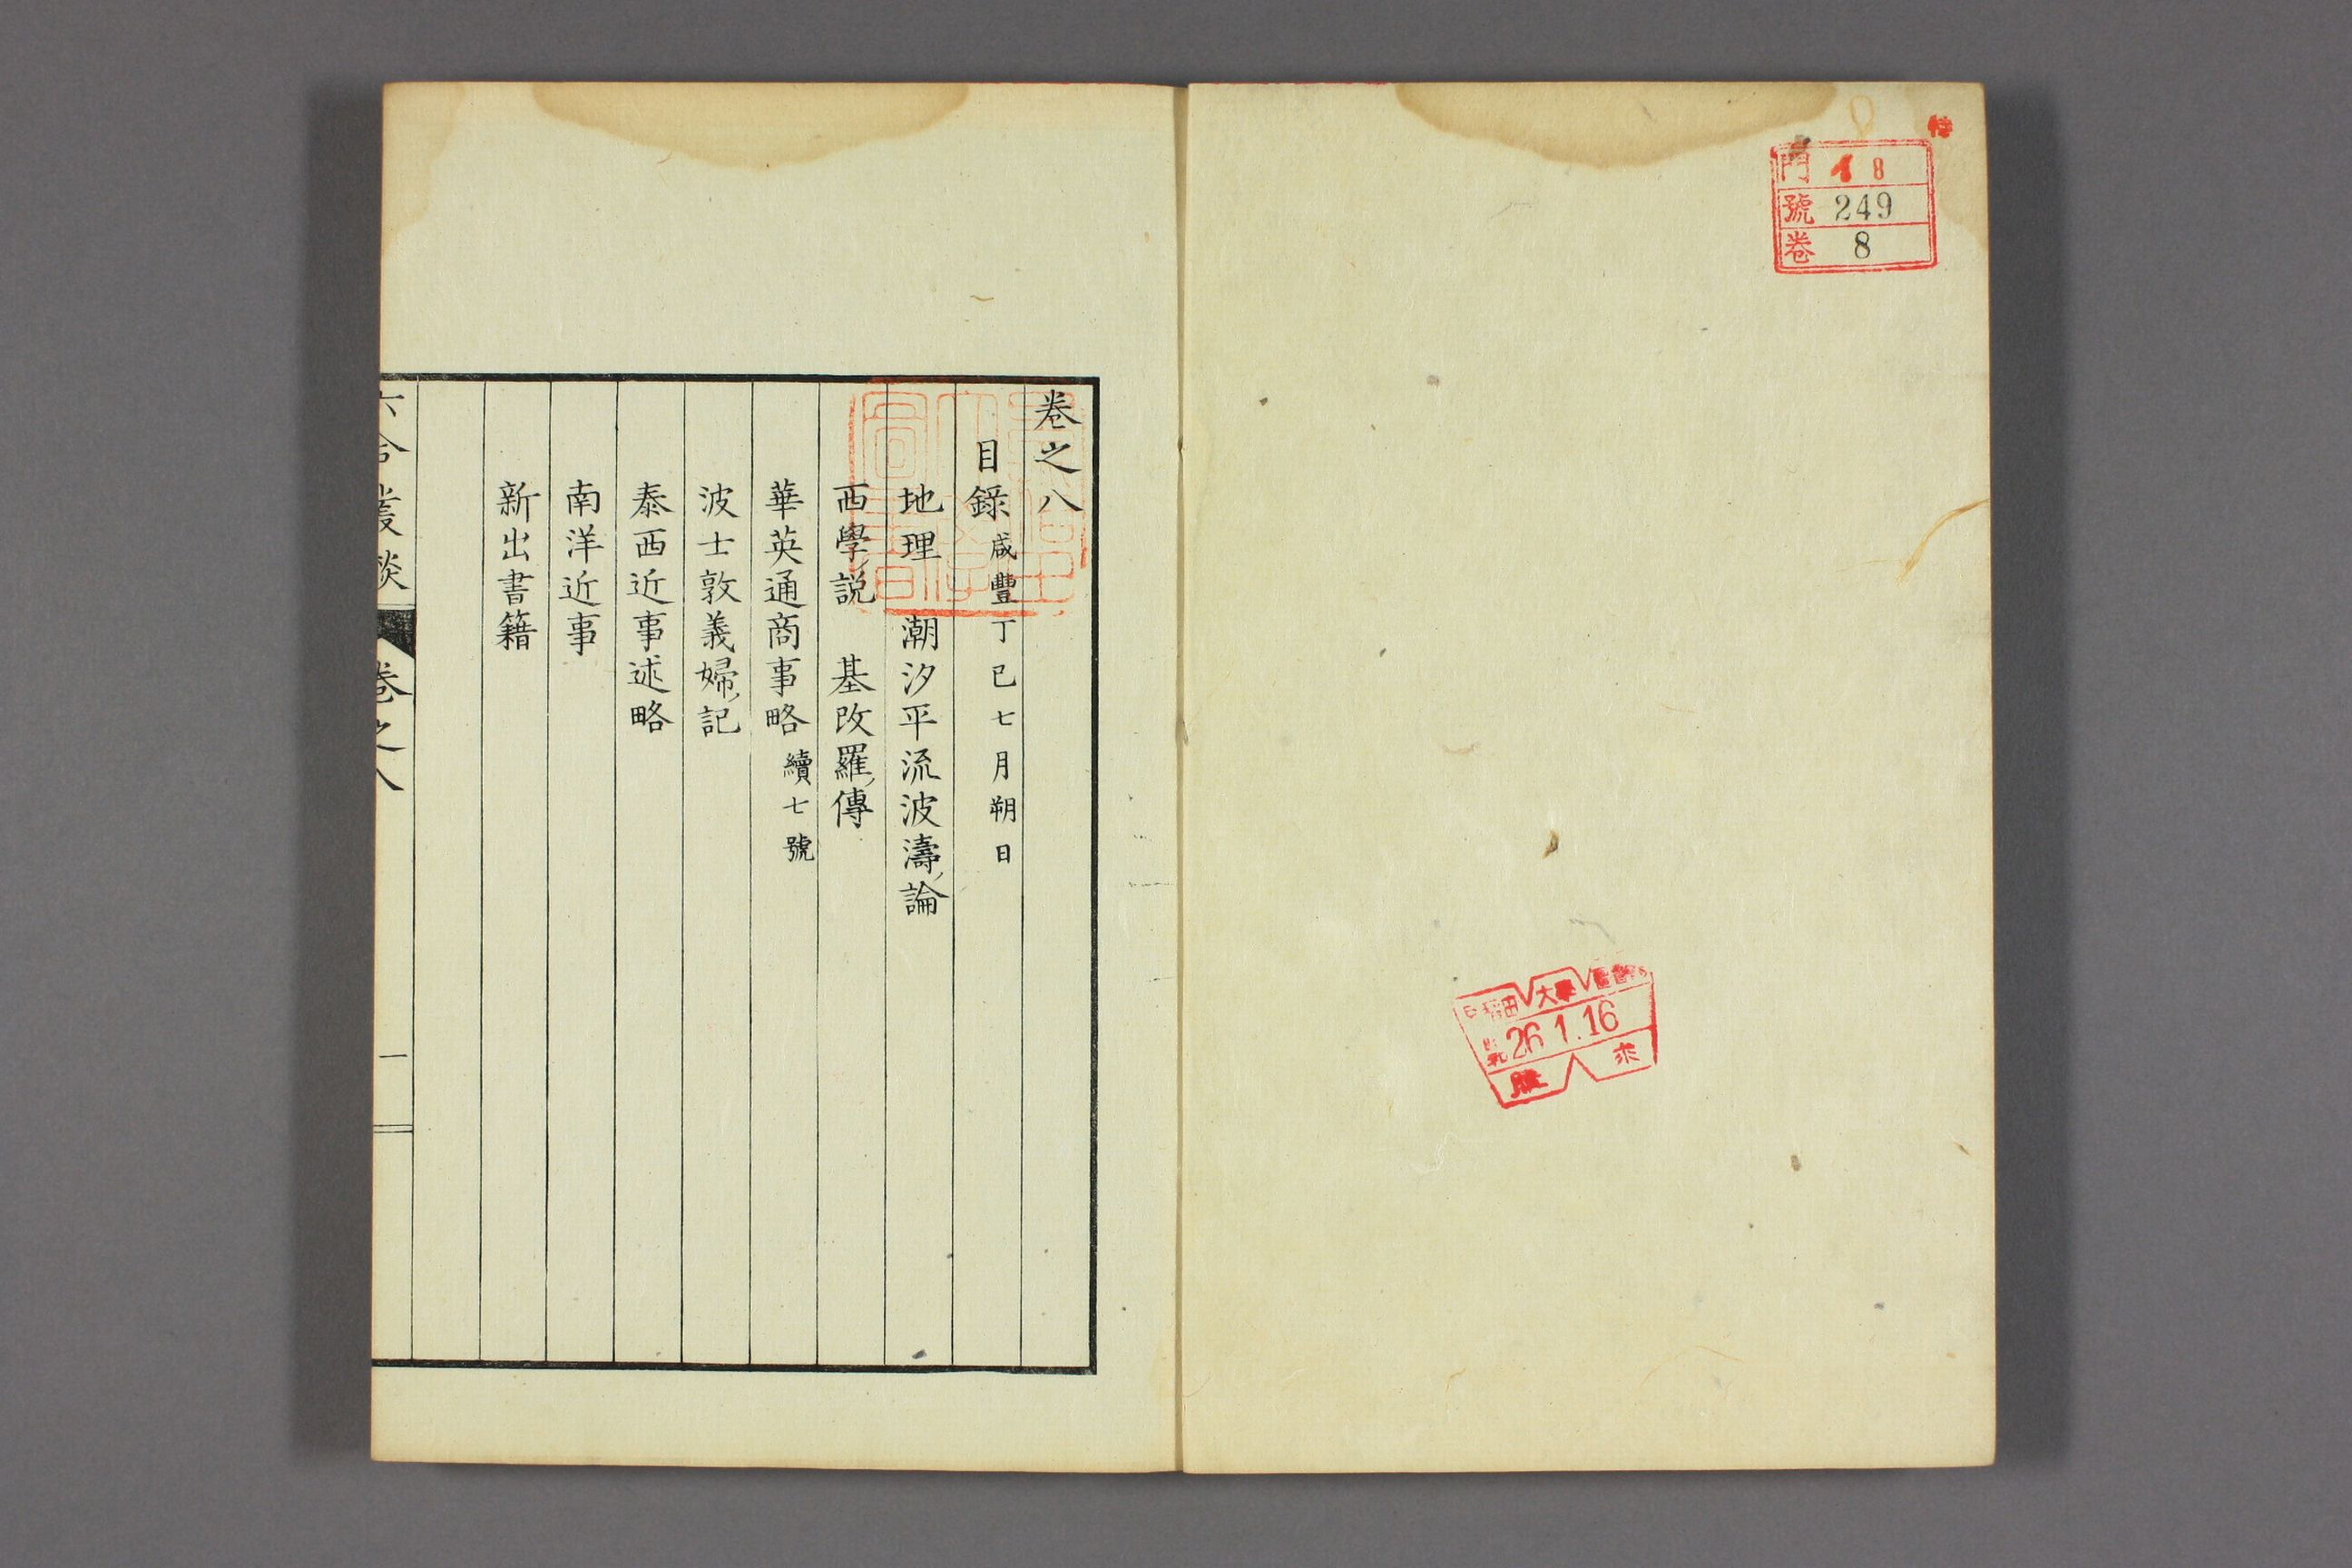 特
門 イ 8
號 249
卷 8
早稲田大學圖書
昭和 26.1.16
購 求
卷之八
目錄 咸豐丁巳七月朔日
地理 潮汐平流波濤論
西學說 基改羅傳
華英通商事略 續七號
波士敦義婦記
泰西近事述略
南洋近事
新出書籍
六合叢談 卷之八 一